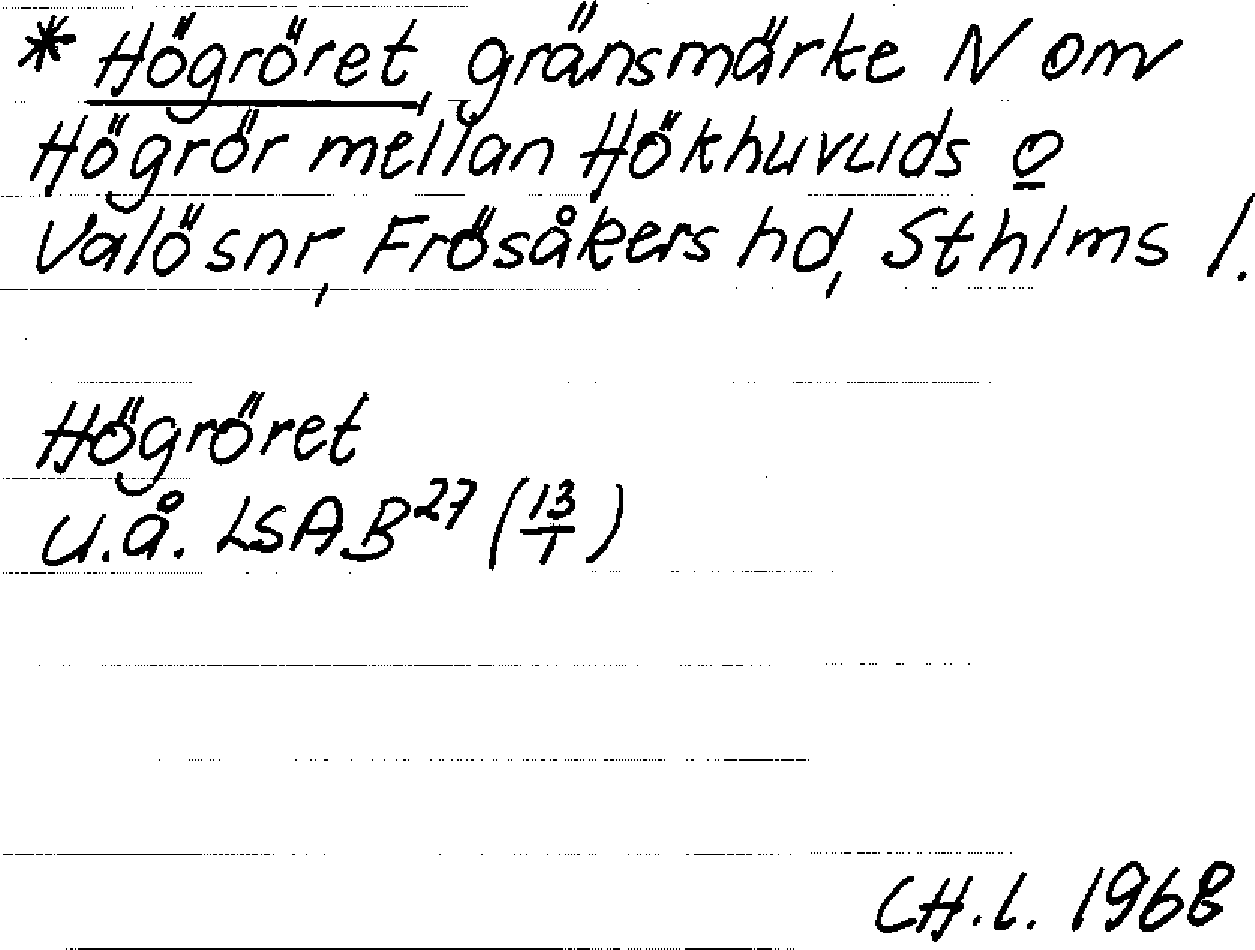 * Högröret, gränsmärke N om
Högrör mellan Hökhuvuds o
Valösnr, Frösåkers hd, Sthlms l.
Högröret
u.å. LSA B²⁷ (13/1)
CH.L. 1968